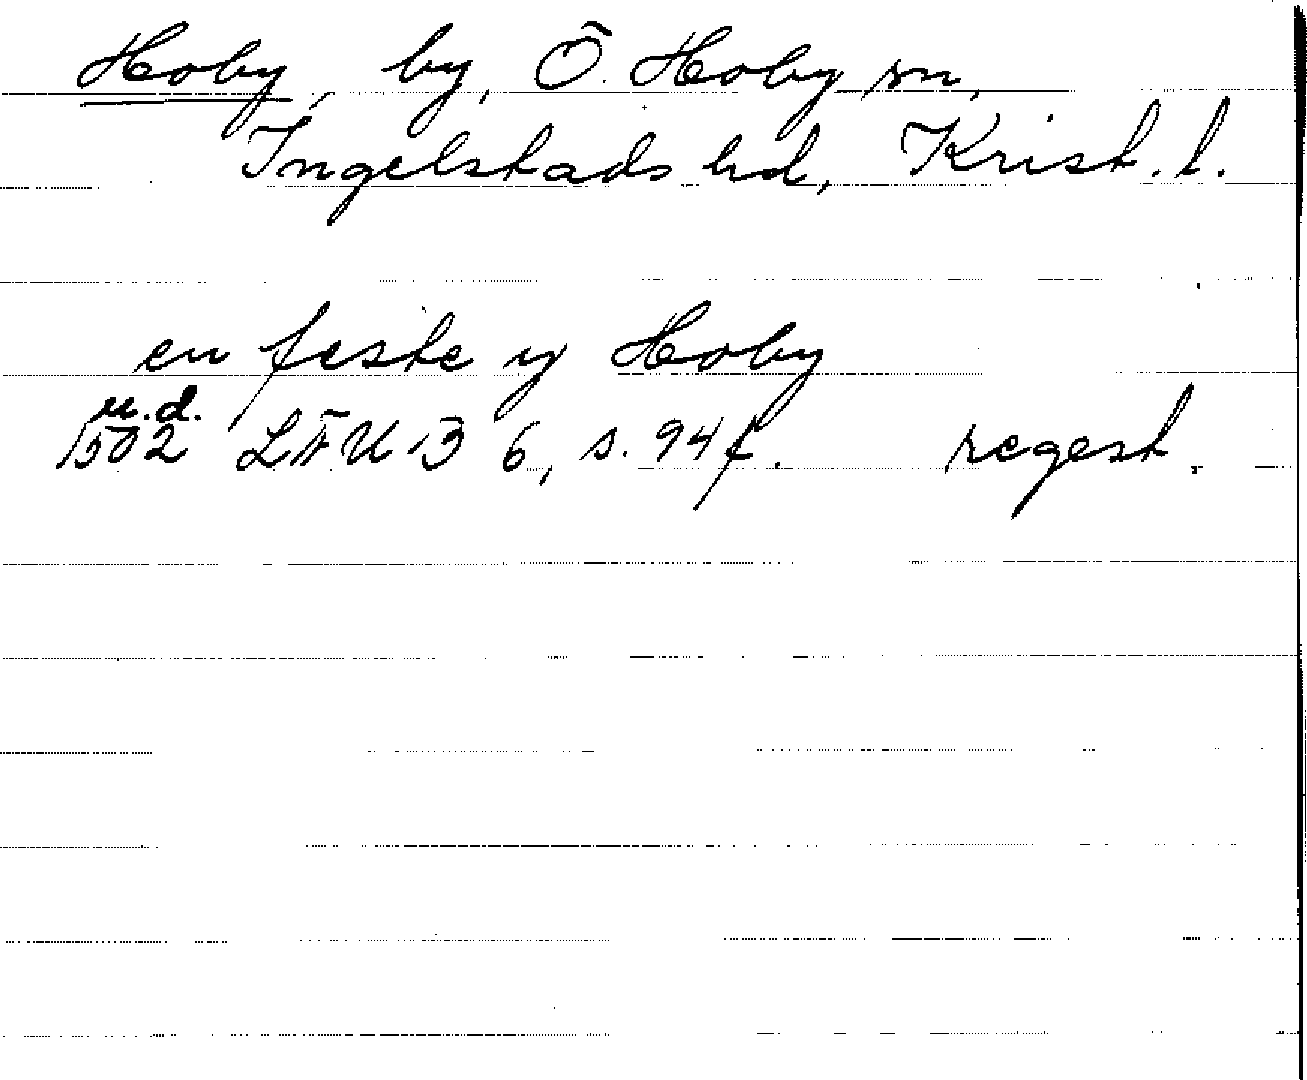 Hoby, by, Ö. Hoby sn,
Ingelstads hd, Krist. l.
en feste y Hoby
u.d.
1502 LÄU B 6, s. 94 f. regest.